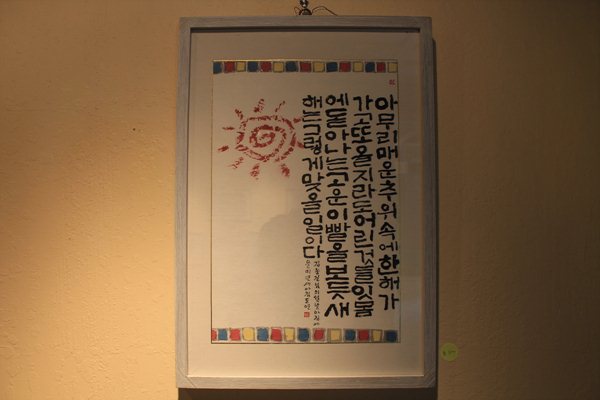 아무리매운추위속에한해가
가고또올지라도어린것들잇몸
에돋아나는고운이빨을보듯새
해는그렇게맞을일이다